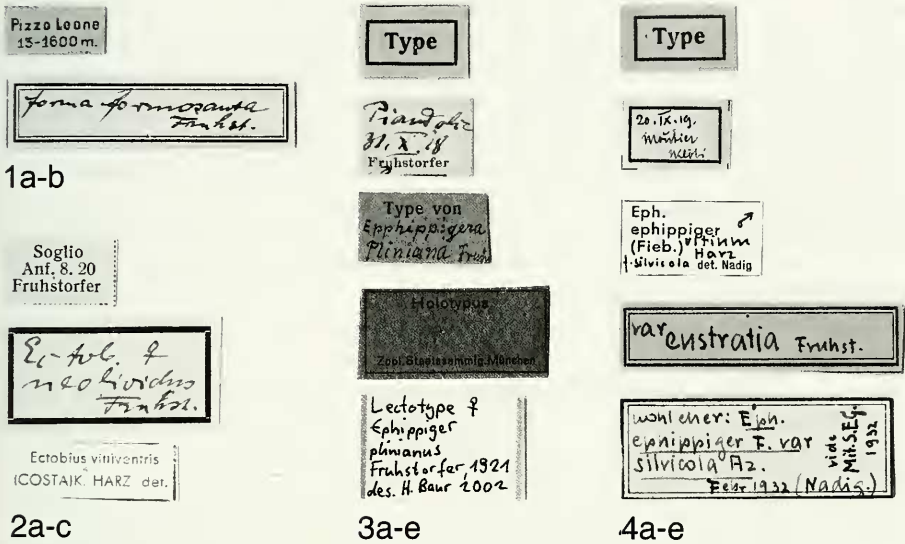 Pizzo Leone
13-1600 m.
forma formosanta
Fruhst.
1a-b
Soglio
Anf. 8. 20
Fruhstorfer
Ectob. ♀
neolividus
Fruhst.
Ectobius vittiventris
(COSTA)K. HARZ det.
2a-c
Type
31. X. 18
Fruhstorfer
Type von
Epphippigera
Pliniana Fruh
Holotypus
Zool.Staatssammlg.München
Lectotype ♀
Ephippiger
plinianus
Fruhstorfer, 1921
des. H. Baur 2002
3a-e
Type
20. IX. 19.
Moutier
Eph. ♂
ephippiger
(Fieb.) vitium
Harz
f. silvicola det. Nadig
var eustratia Fruhst.
wohl eher: Eph.
ephippiger F. var
silvicola Az.
Febr 1932 (Nadig.)
vide
Mit.S.E.G.
1932
4a-e